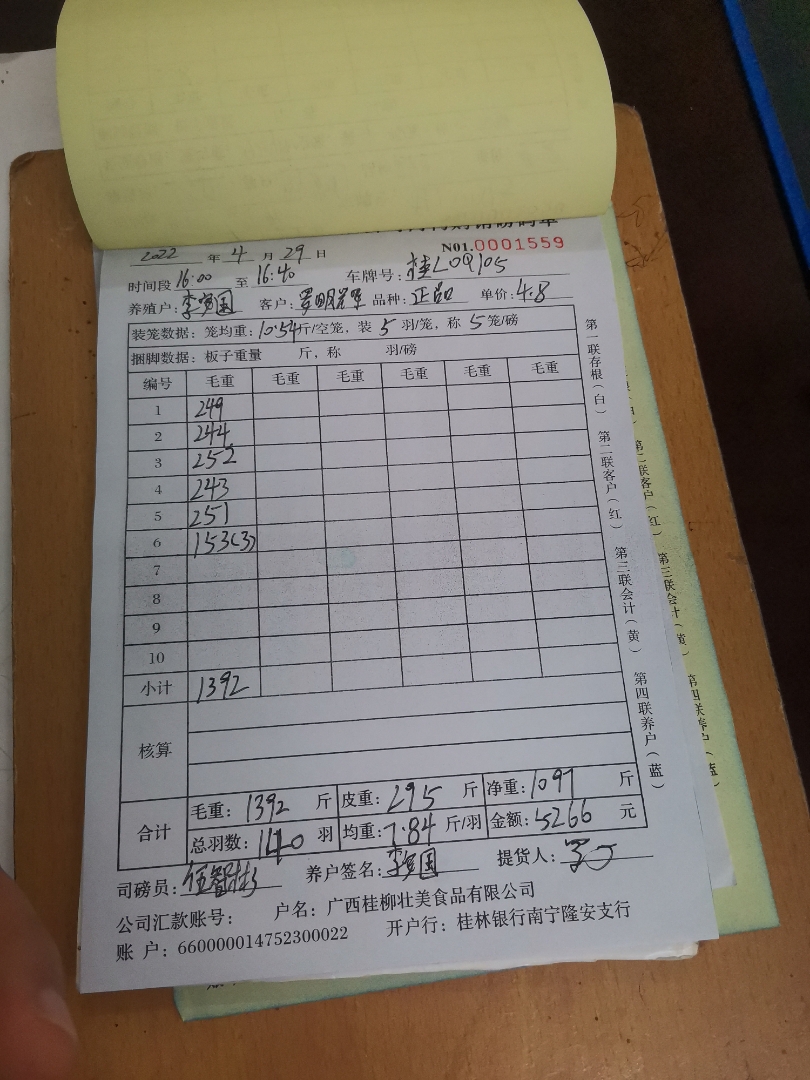 N01.0001559
2022 年 4 月 29 日
时间段 16:00 至 16:40 车牌号: 桂L0Q105
养殖户: 李宽国 客户: 品种: 正品 单价: 4.8
装笼数据: 笼均重: 10.54斤/空笼, 装 5 羽/笼, 称 5 笼/磅
捆脚数据: 板子重量 斤, 称 羽/磅
编号 毛重 毛重 毛重 毛重 毛重 毛重
1 249
2 244
3 252
4 243
5 251
6 153(3)
7
8
9
10
小计 1392
核算
合计
毛重: 1392 斤 皮重: 295 斤 净重: 1097 斤
总羽数: 140 羽 均重: 7.84 斤/羽 金额: 5266 元
司磅员: 养户签名: 李宽国 提货人:
公司汇款账号: 户名: 广西桂柳壮美食品有限公司
账 户: 660000014752300022 开户行: 桂林银行南宁隆安支行
第一联存根(白) 第二联客户(红) 第三联会计(黄) 第四联养户(蓝)